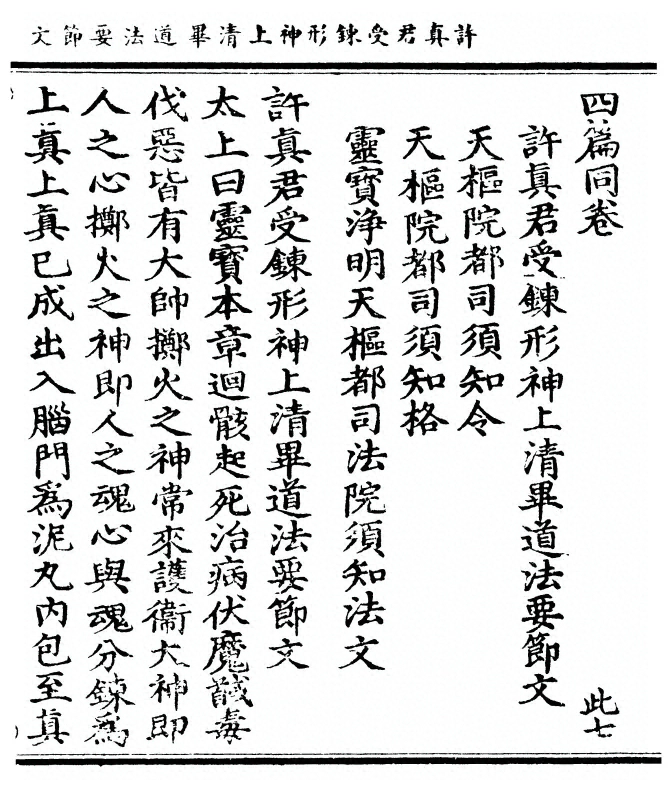 許真君受鍊形神上清畢道法要節文
四篇同卷 此七
許眞君受鍊形神上清畢道法要節文
天樞院都司須知令
天樞院都司須知格
靈寶净明天樞都司法院須知法文
許眞君受鍊形神上清畢道法要節文
太上曰靈寶本章迴骸起死治病伏魔馘毒
伐惡皆有大帥擲火之神常來護衞大神即
人之心擲火之神即人之魂心與魂分鍊爲
上眞上眞已成出入腦門爲泥丸内包至眞